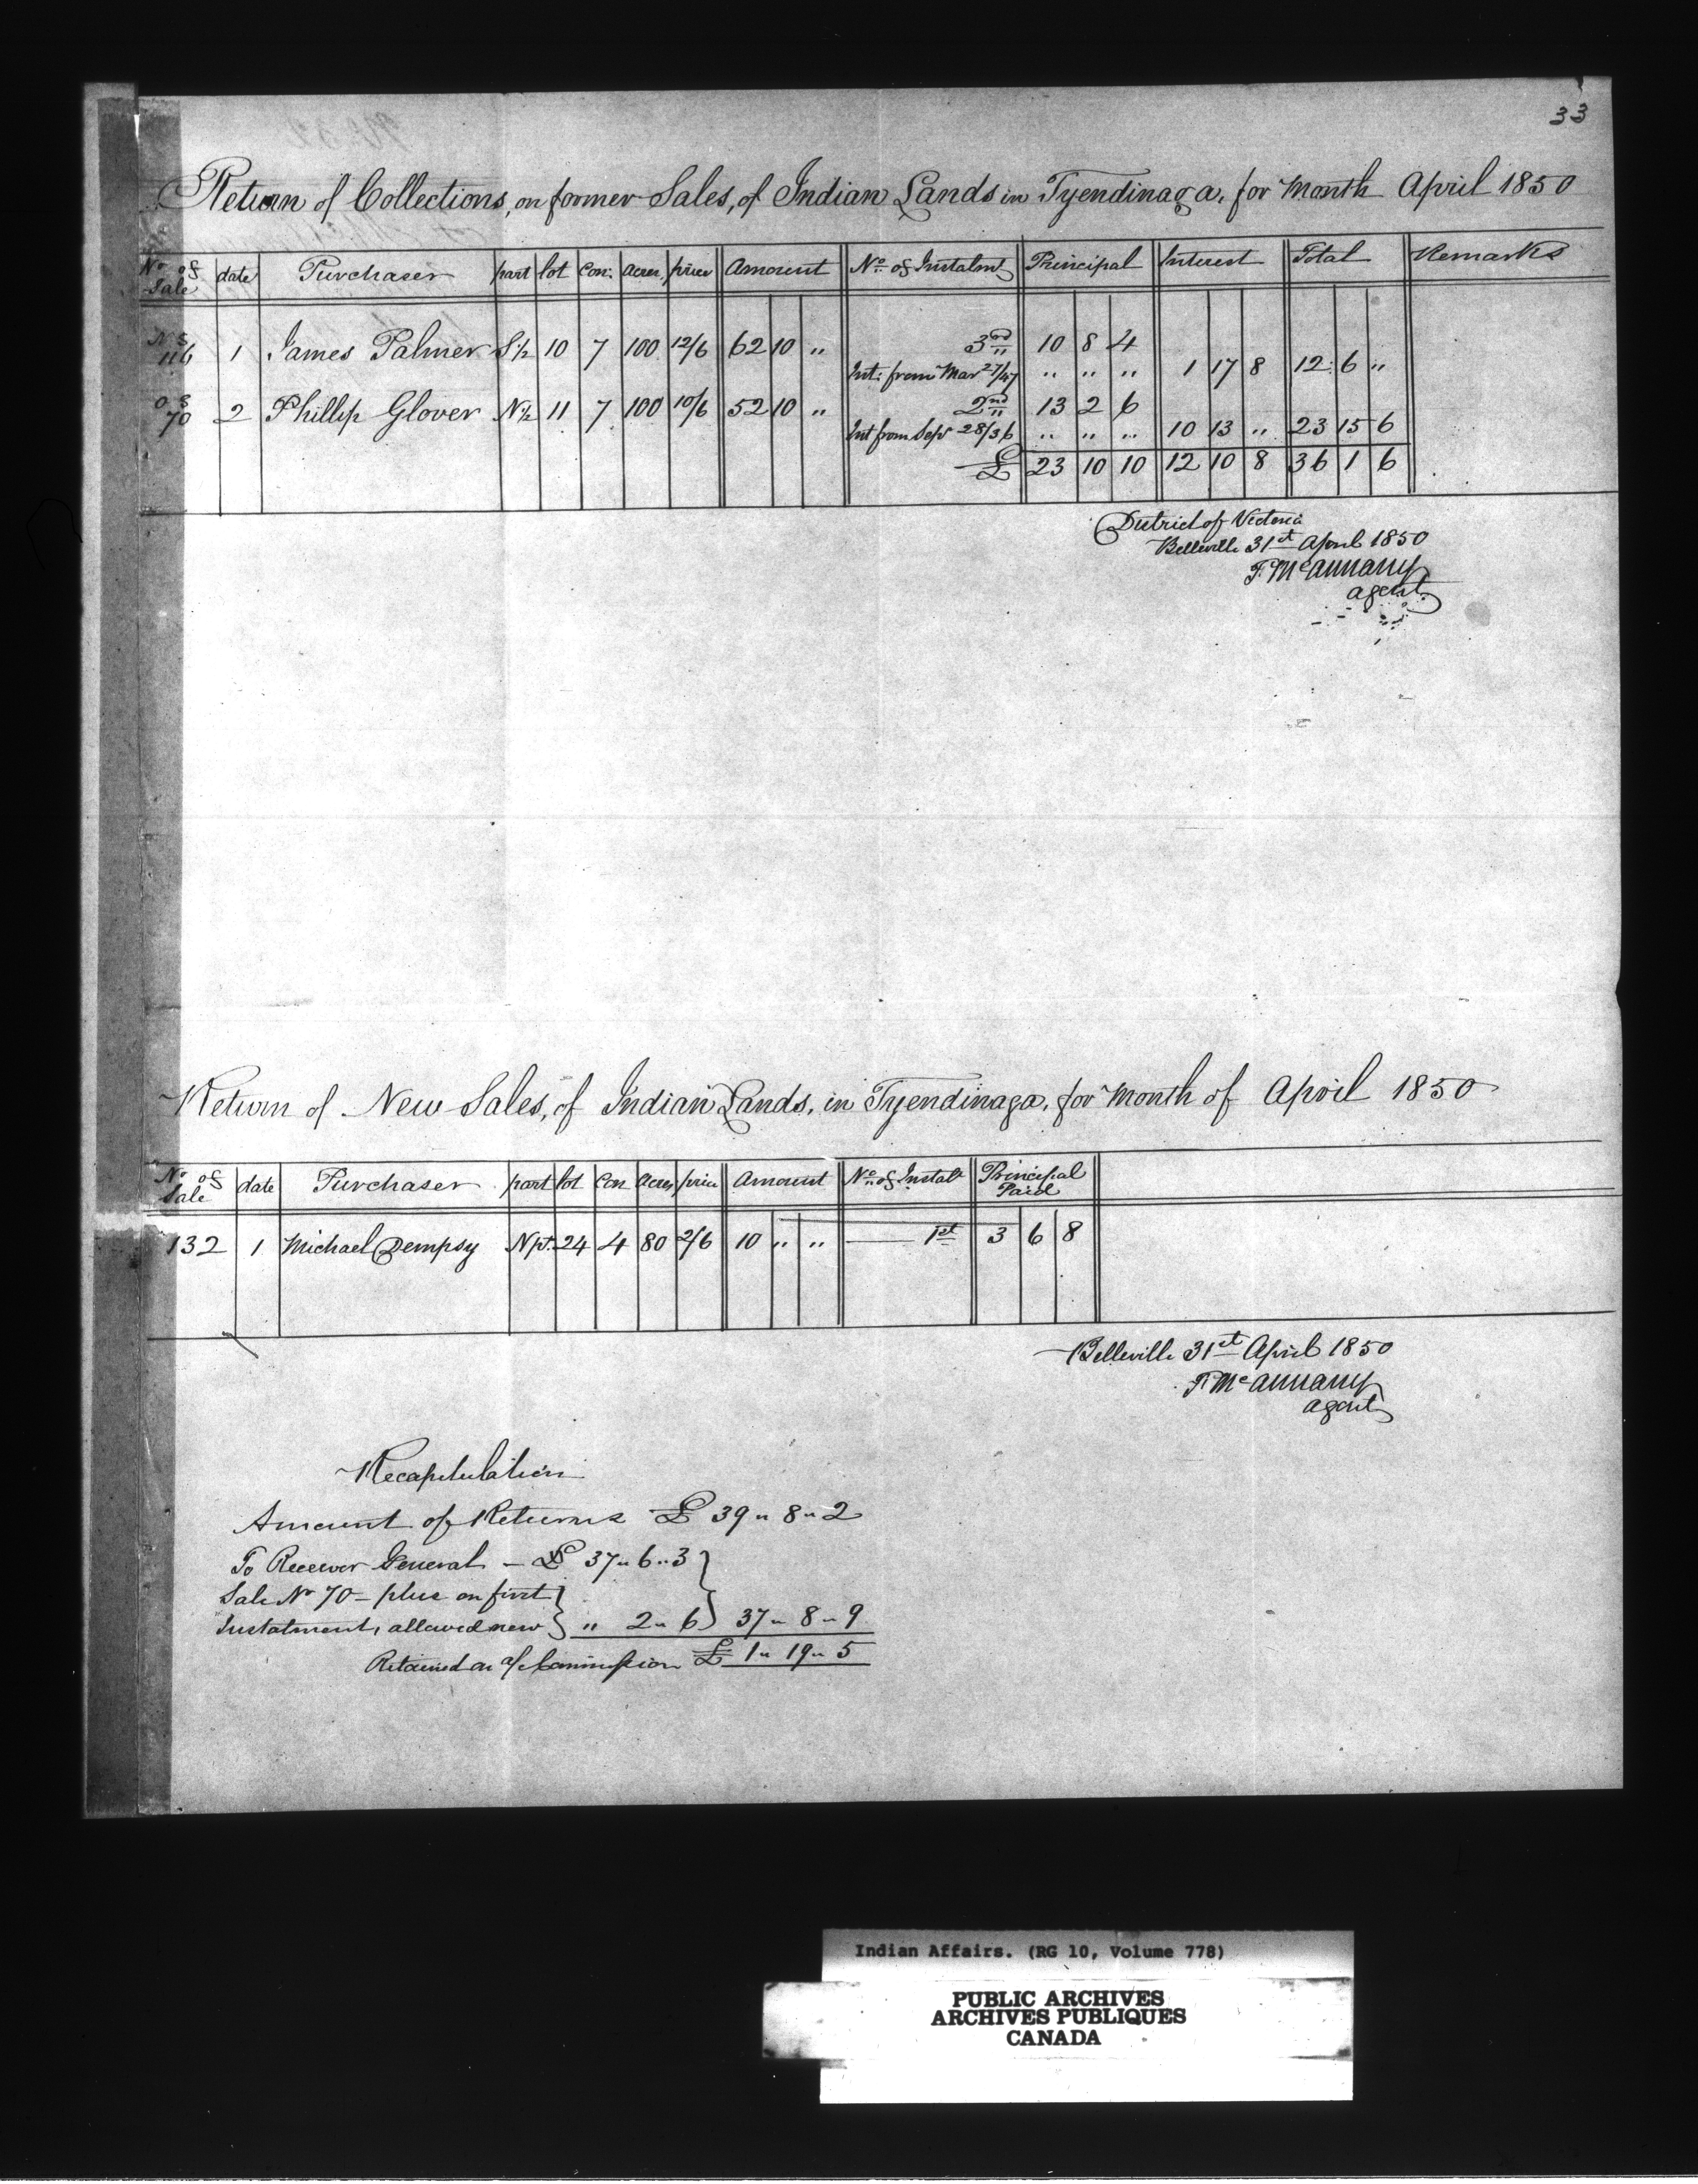 33
Return of Collections, on former Sales, of Indian Lands in Tyendinaga, for Month April 1850
No of Sale date Purchaser part lot Con: Acres price Amount No of Instalmt Principal Interest Total Remarks
N S 116 1 James Palmer S½ 10 7 100 12/6 62 10 " 3rd 10 8 4
Int: from Mar 27/47 " " " 1 17 8 12 6 "
O S 70 2 Phillip Glover N½ 11 7 100 10/6 52 10 " 2nd 13 2 6
Int from Sepr 28/36 " " " 10 13 " 23 15 6
£ 23 10 10 12 10 8 36 1 6
District of Victoria
Belleville 31st April 1850
T. McAnnany
agent
Return of New Sales, of Indian Lands, in Tyendinaga, for Month of April 1850
No of Sale date Purchaser part lot Con Acres price Amount No of Instalt Principal Paid
132 1 Michael Dempsy N pt. 24 4 80 2/6 10 " " 1st 3 6 8
Belleville 31st April 1850
T. McAnnany
agent
Recapitulation
Amount of Returns £ 39 " 8 " 2
To Receiver General - £ 37 " 6 " 3
Sale No 70 - plus on first
Instalment, allowed now " 2 " 6 37 " 8 " 9
Retained on a/c Commission £ 1 " 19 " 5
Indian Affairs. (RG 10, Volume 778)
PUBLIC ARCHIVES
ARCHIVES PUBLIQUES
CANADA